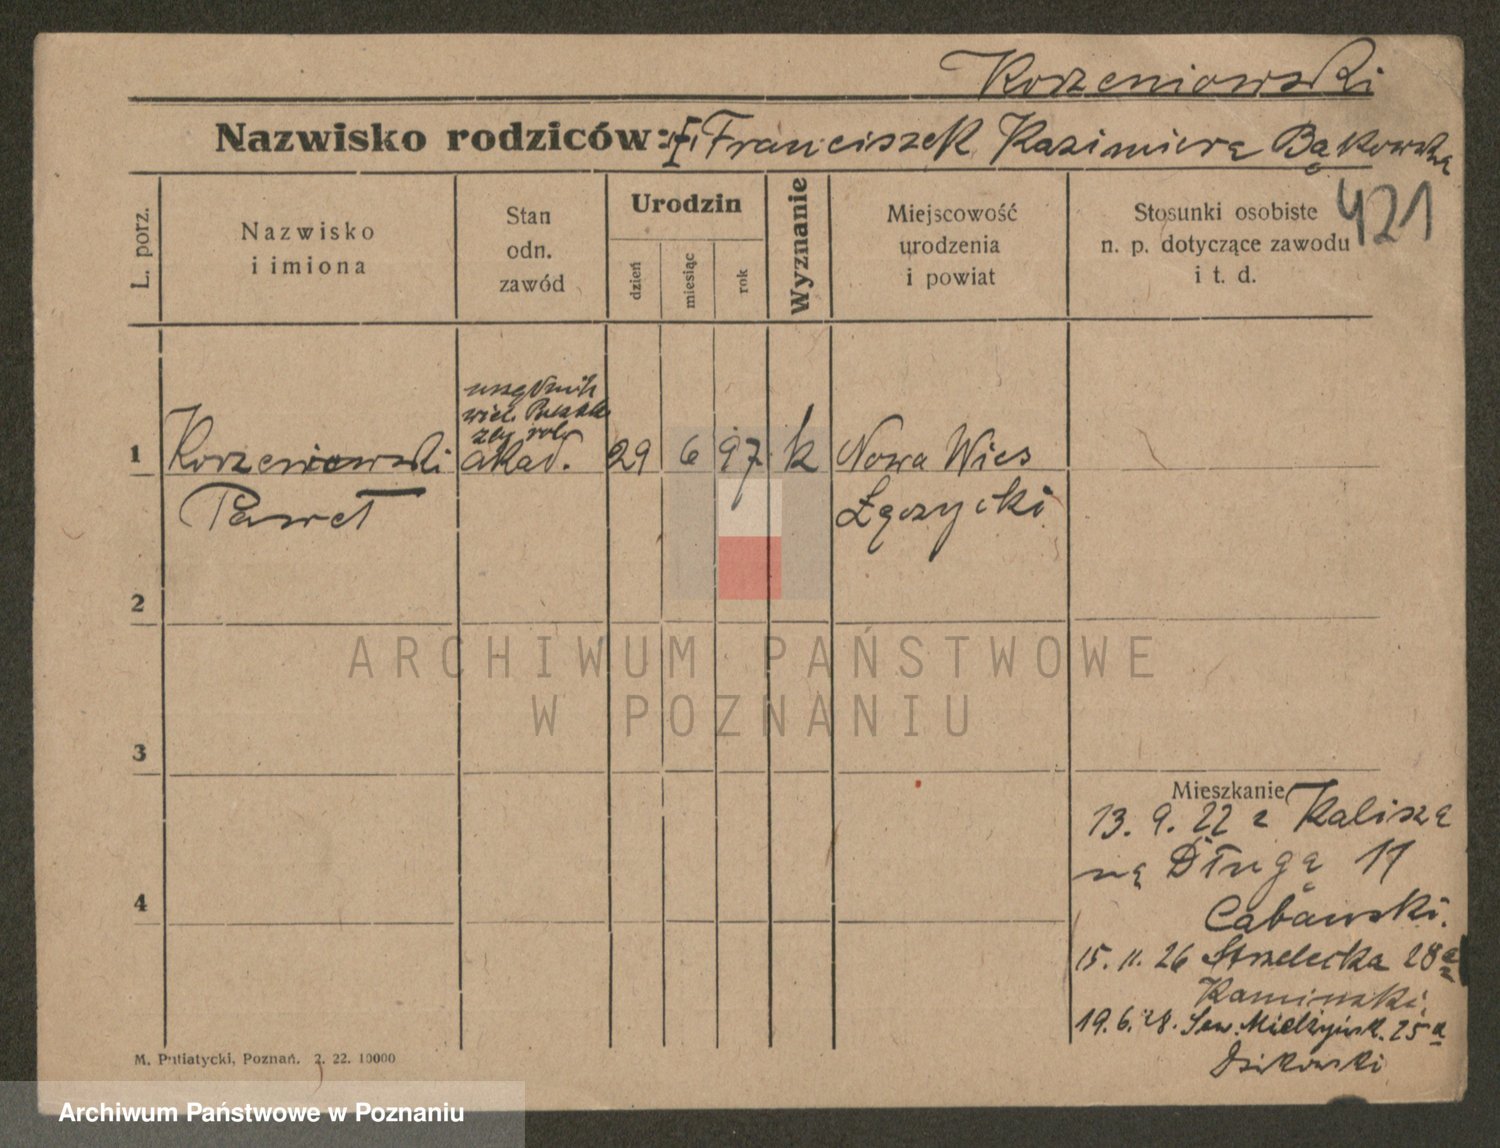 Korzeniowski
Nazwisko rodziców: Franciszek Kazimiera Bąkowska
421
L. porz.
Nazwisko
i imiona
Stan
odn.
zawód
Urodzin
dzień
miesiąc
rok
Wyznanie
Miejscowość
urodzenia
i powiat
Stosunki osobiste
n. p. dotyczące zawodu
i t. d.
1 Korzeniowski akad. 29 6 97 k Nowa Wies
Paweł Łęczycki
2
3
4
Mieszkanie
13. 9. 22 z Kalisza
na Długą 11
Cabański.
15. 11. 26 Strzelecka 28a
Kaminski.
19. 6. 28. Sew. Mielżyńsk. 25a
M. Putiatycki, Poznań. 2. 22. 10000
ARCHIWUM PAŃSTWOWE
W POZNANIU
Archiwum Państwowe w Poznaniu